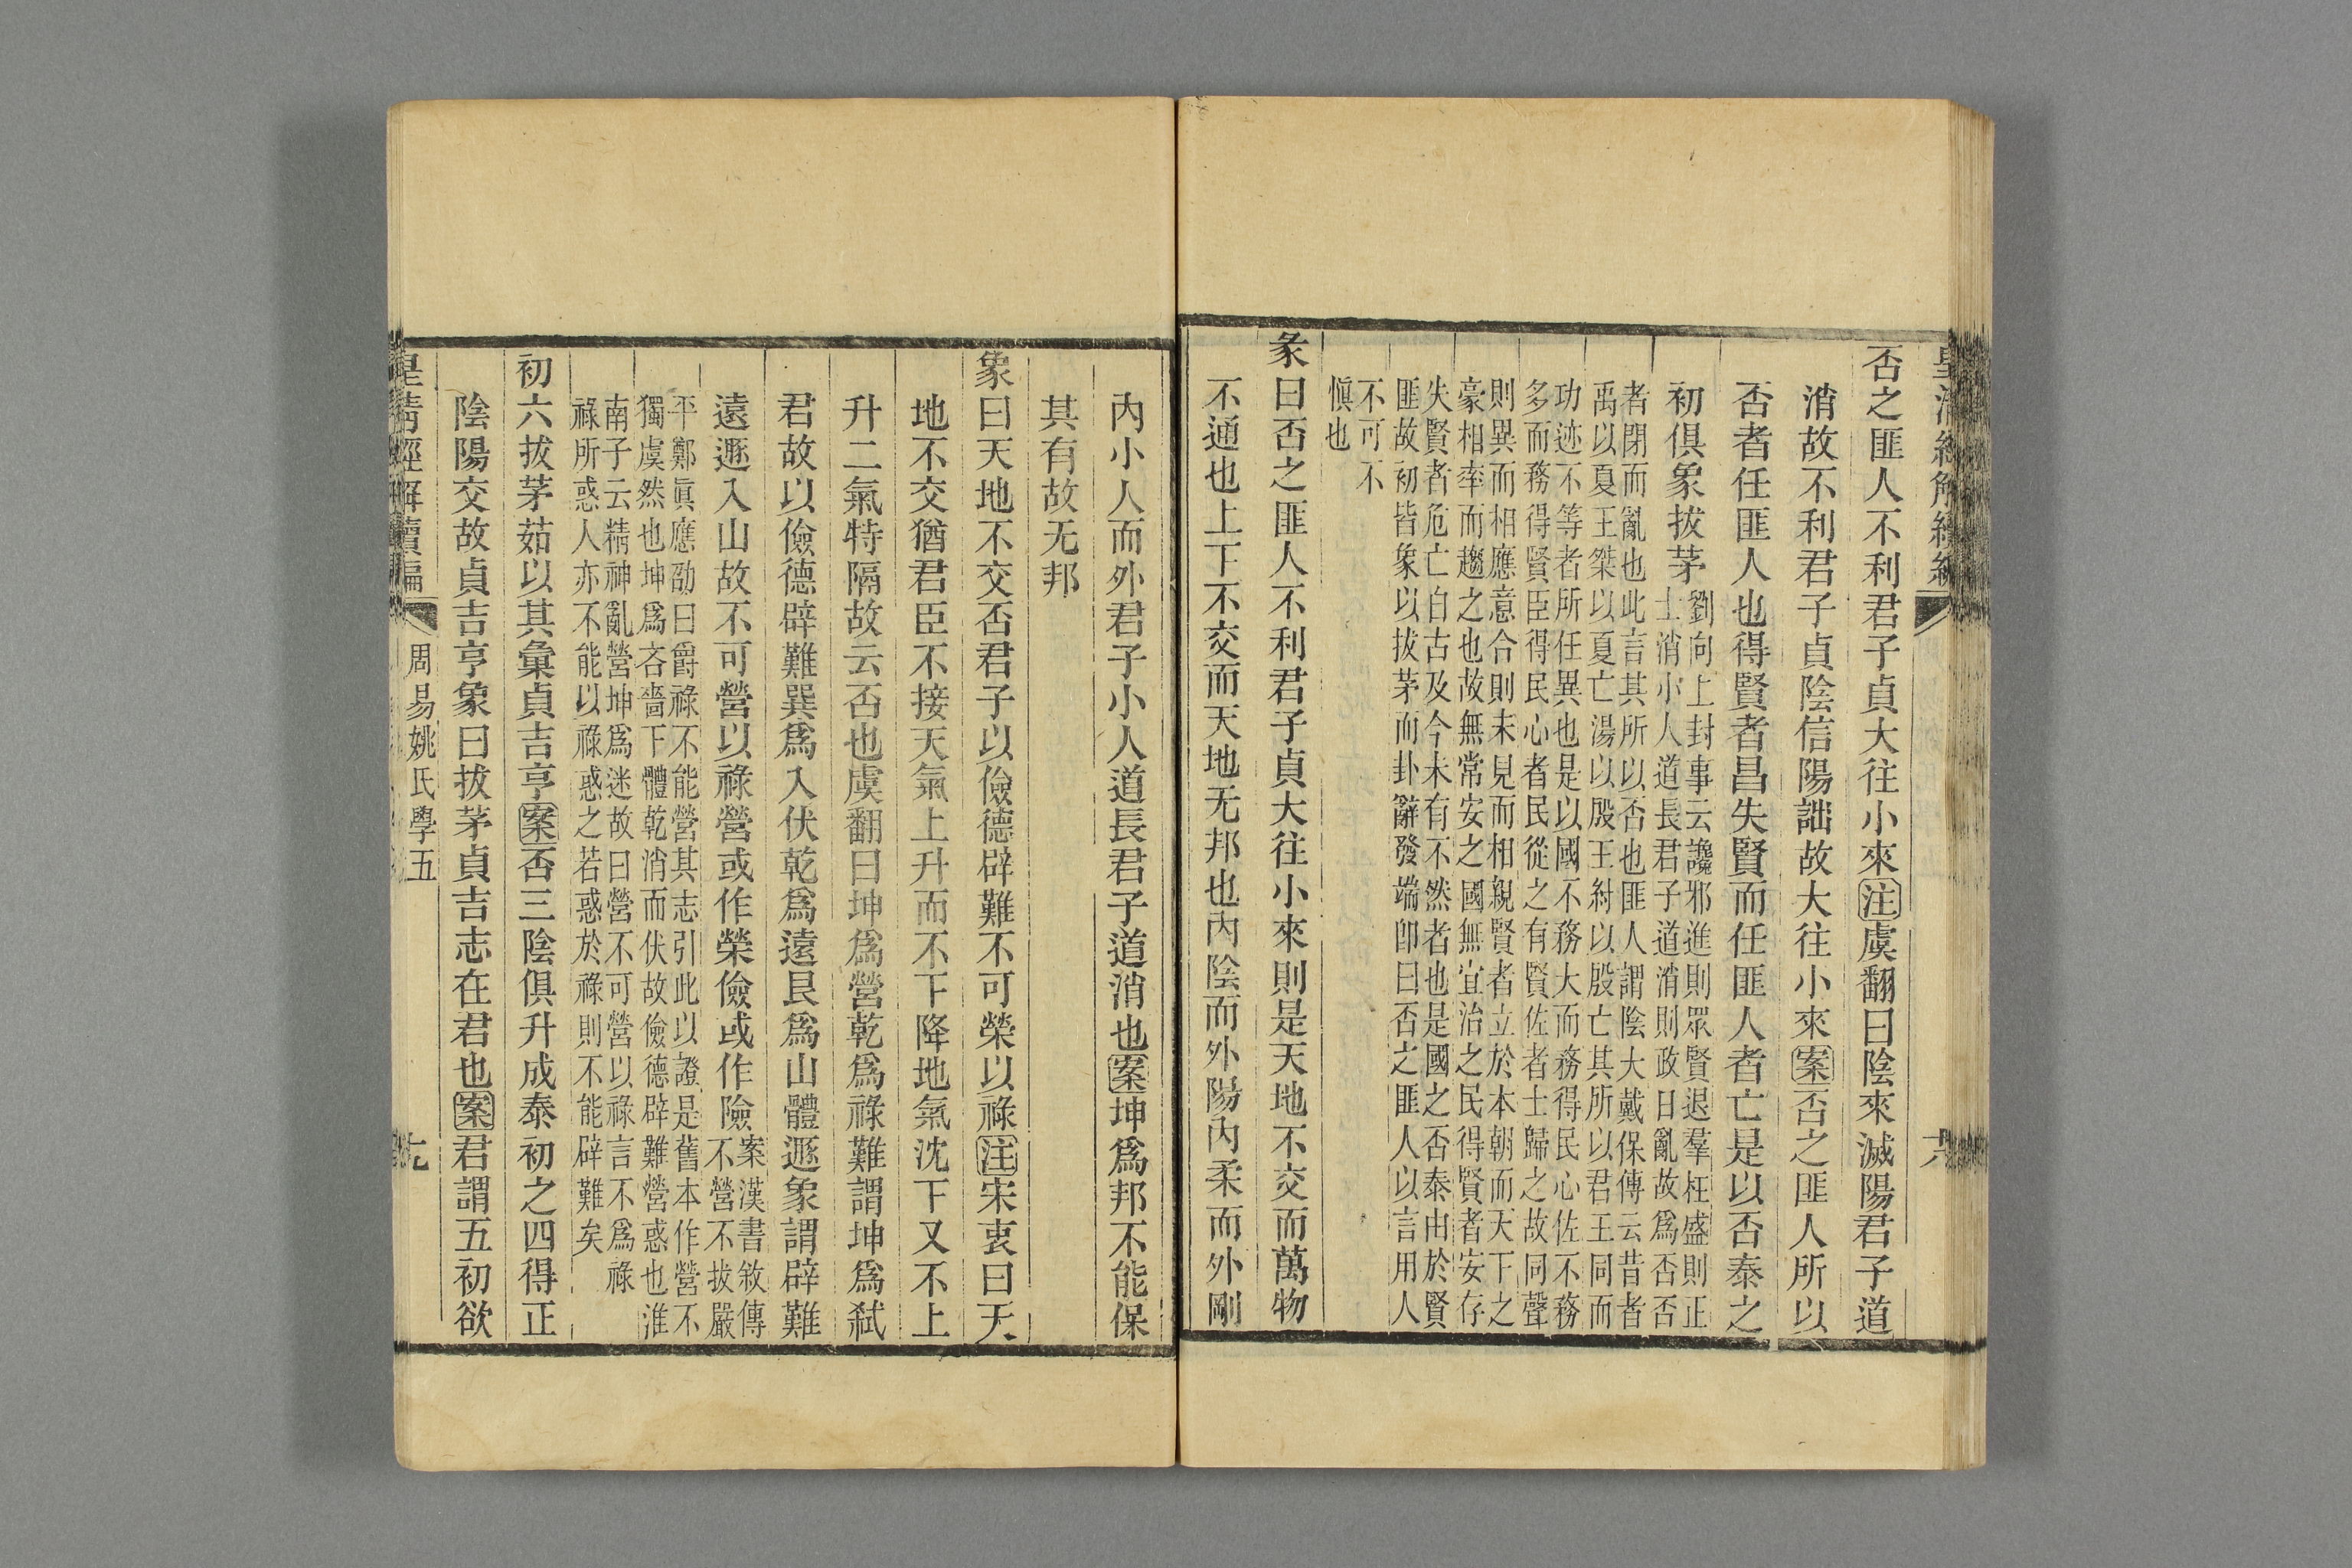 皇清經解續編
六
否之匪人不利君子貞大往小來注虞翻曰陰來滅陽君子道
消故不利君子貞陰信陽詘故大往小來案否之匪人所以
否者任匪人也得賢者昌失賢而任匪人者亡是以否泰之
初俱象拔茅
劉向上封事云讒邪進則眾賢退羣枉盛則正
士消小人道長君子道消則政日亂故爲否否
者閉而亂也此言其所以否也匪人謂陰大戴保傳云昔者
禹以夏王桀以夏亡湯以殷王紂以殷亡其所以君王同而
功迹不等者所任異也是以國不務大而務得民心佐不務
多而務得賢臣得民心者民從之有賢佐者士歸之故同聲
則異而相應意合則未見而相親賢者立於本朝而天下之
豪相率而趨之也故無常安之國無宜治之民得賢者安存
失賢者危亡自古及今未有不然者也是國之否泰由於賢
匪故初皆象以拔茅而卦辭發端卽曰否之匪人以言用人
不可不
愼也
彖曰否之匪人不利君子貞大往小來則是天地不交而萬物
不通也上下不交而天地无邦也內陰而外陽內柔而外剛
內小人而外君子小人道長君子道消也案坤爲邦不能保
其有故无邦
象曰天地不交否君子以儉德辟難不可榮以祿注宋衷曰天
地不交猶君臣不接天氣上升而不下降地氣沈下又不上
升二氣特隔故云否也虞翻曰坤爲營乾爲祿難謂坤爲弒
君故以儉德辟難巽爲入伏乾爲遠艮爲山體遯象謂辟難
遠遯入山故不可營以祿營或作榮儉或作險
案漢書敘傳
不營不拔嚴
平鄭眞應劭曰爵祿不能營其志引此以證是舊本作營不
獨虞然也坤爲吝嗇下體乾消而伏故儉德辟難營惑也淮
南子云精神亂營坤爲迷故曰營不可營以祿言不爲祿
祿所惑人亦不能以祿惑之若惑於祿則不能辟難矣
初六拔茅茹以其彙貞吉亨案否三陰俱升成泰初之四得正
陰陽交故貞吉亨象曰拔茅貞吉志在君也案君謂五初欲
皇清經解續編
周易姚氏學五
七